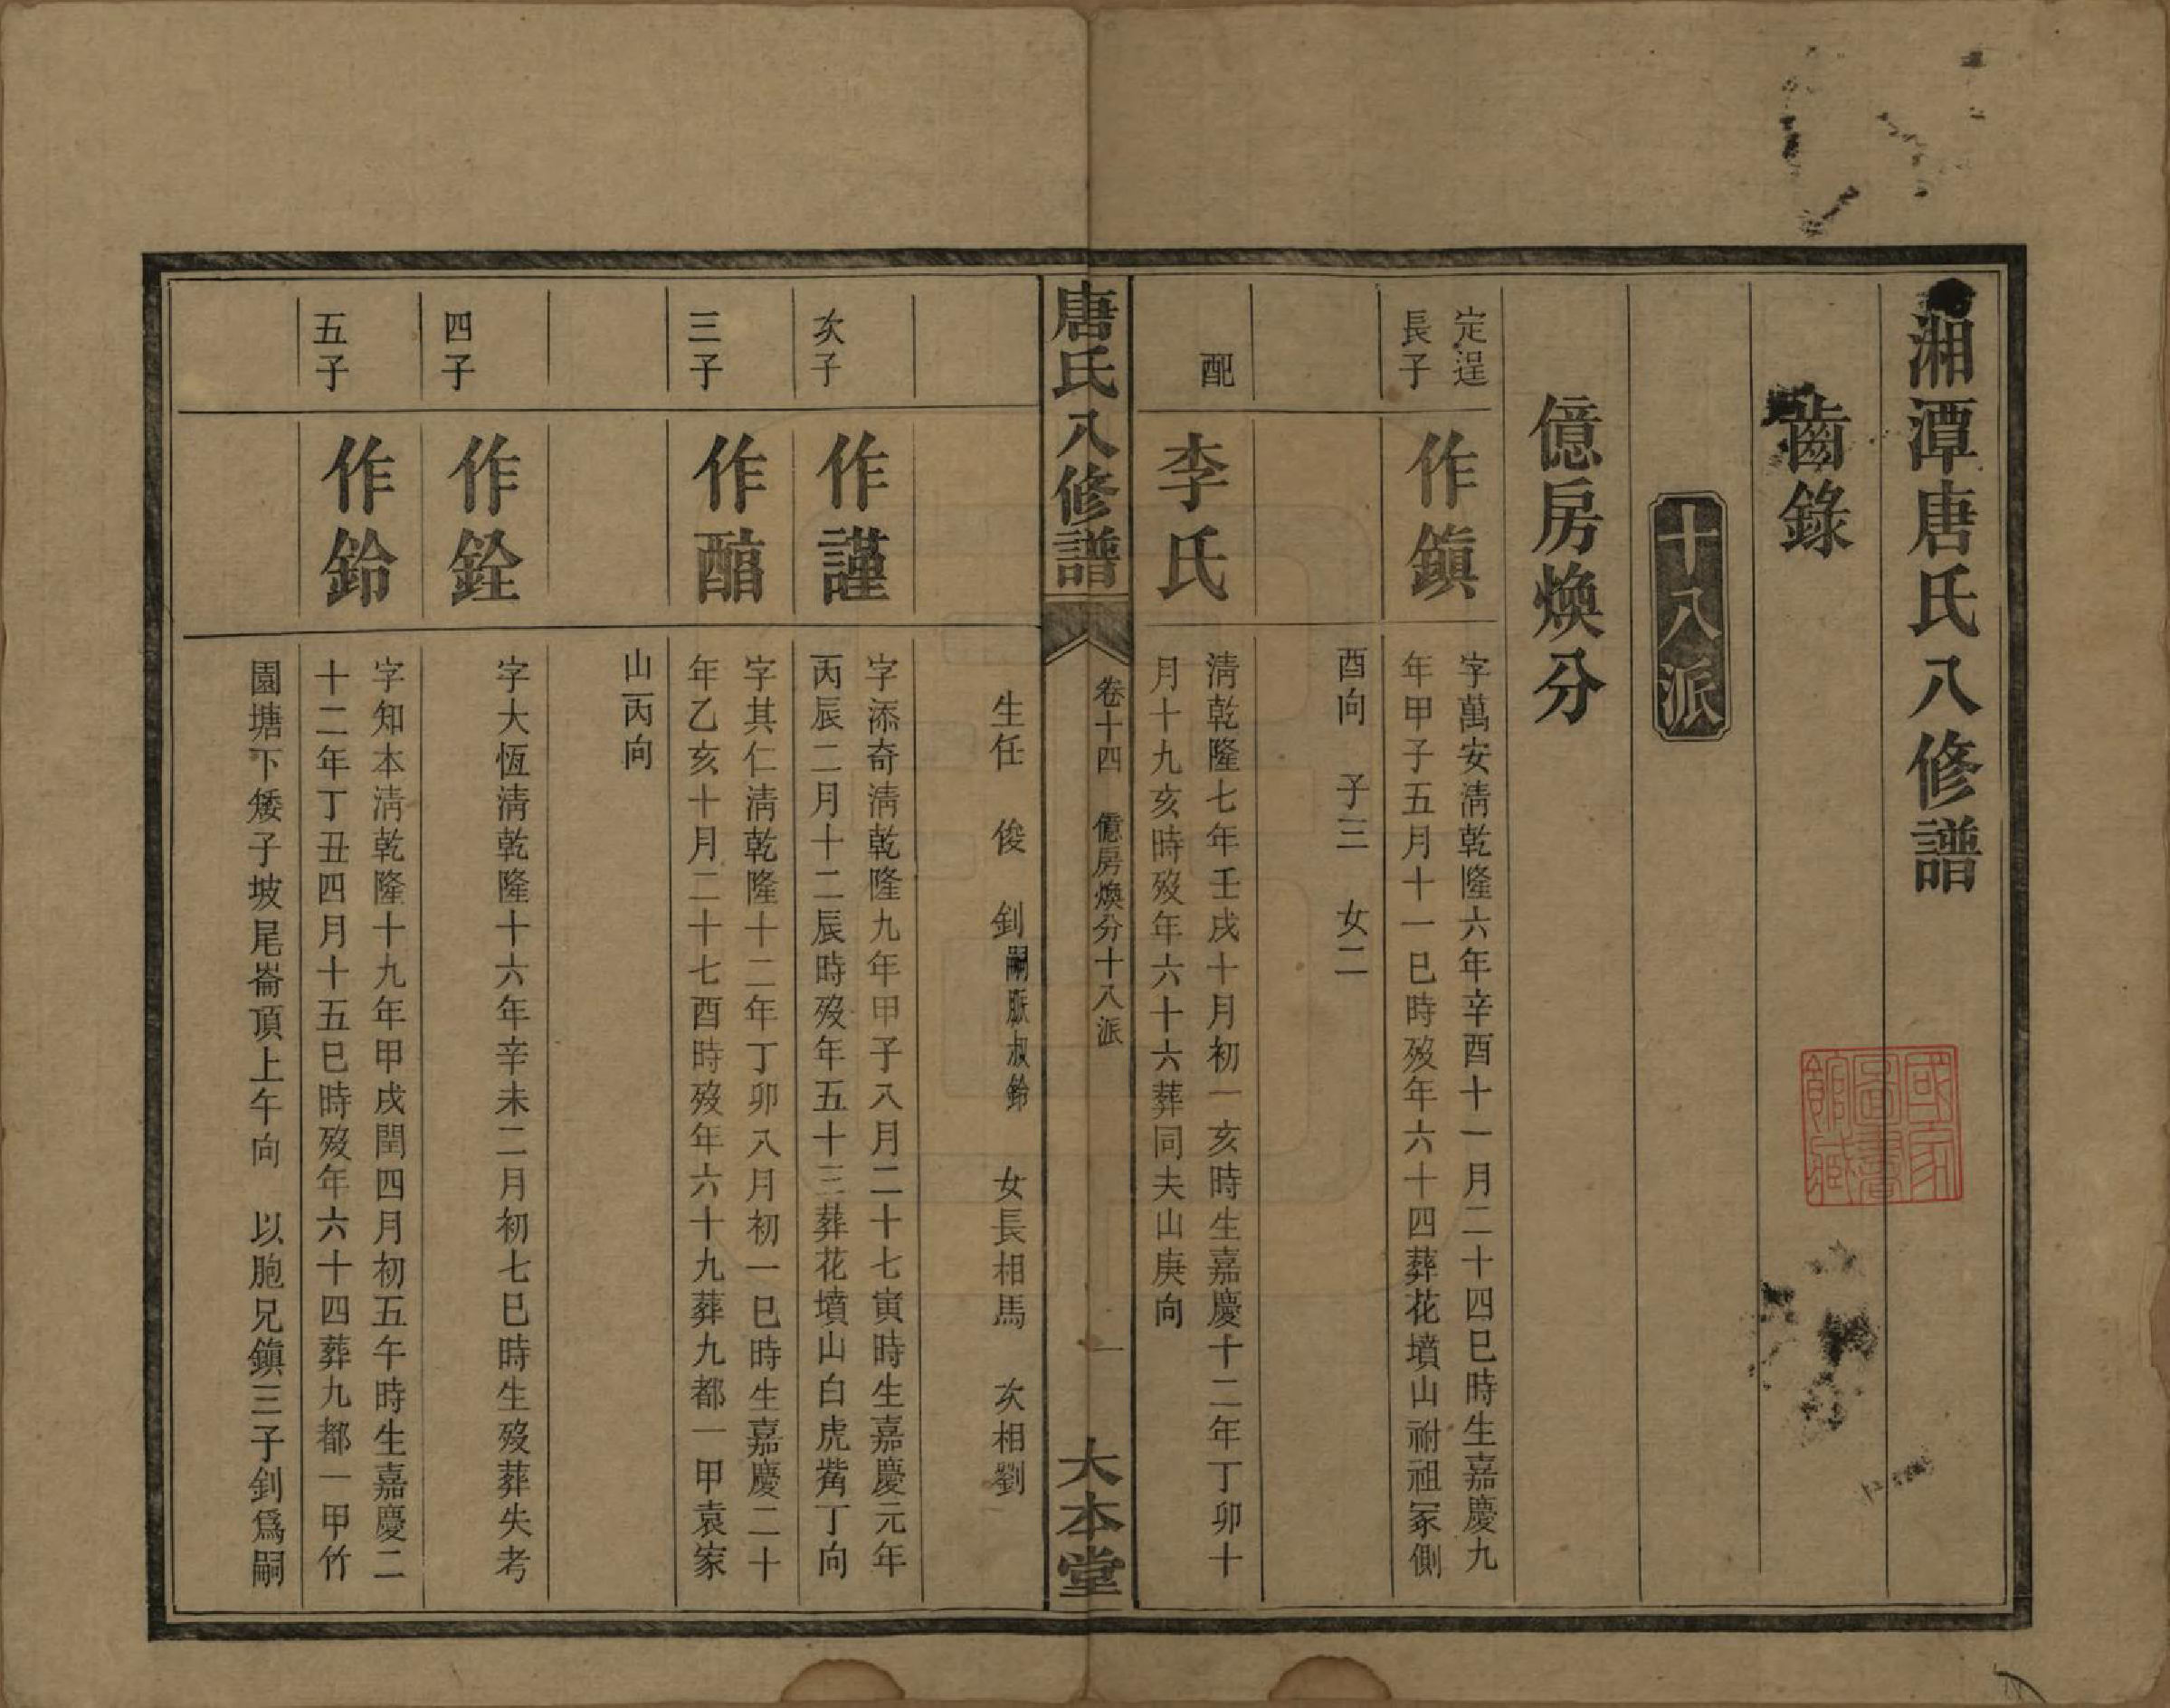 湘潭唐氏八修譜
齒錄
十八派
億房煥分
定逞
長子
作鎮
字萬安清乾隆六年辛酉十一月二十四巳時生嘉慶九
年甲子五月十一巳時歿年六十四葬花墳山祔祖冢側
酉向　子三　女二
配
李氏
清乾隆七年壬戌十月初一亥時生嘉慶十二年丁卯十
月十九亥時歿年六十六葬同夫山庚向
唐氏八修譜
卷十四　億房煥分十八派
一
大本堂
生任　俊　釗嗣胞叔鈴　女長相馬　次相劉
次子
作謹
字添奇清乾隆九年甲子八月二十七寅時生嘉慶元年
丙辰二月十二辰時歿年五十三葬花墳山白虎觜丁向
三子
作醕
字其仁清乾隆十二年丁卯八月初一巳時生嘉慶二十
年乙亥十月二十七酉時歿年六十九葬九都一甲袁家
山丙向
四子
作銓
字大恆清乾隆十六年辛未二月初七巳時生歿葬失考
五子
作鈴
字知本清乾隆十九年甲戌閏四月初五午時生嘉慶二
十二年丁丑四月十五巳時歿年六十四葬九都一甲竹
園塘下矮子坡尾崙頂上午向　以胞兄鎮三子釗爲嗣
國家
圖書
館藏